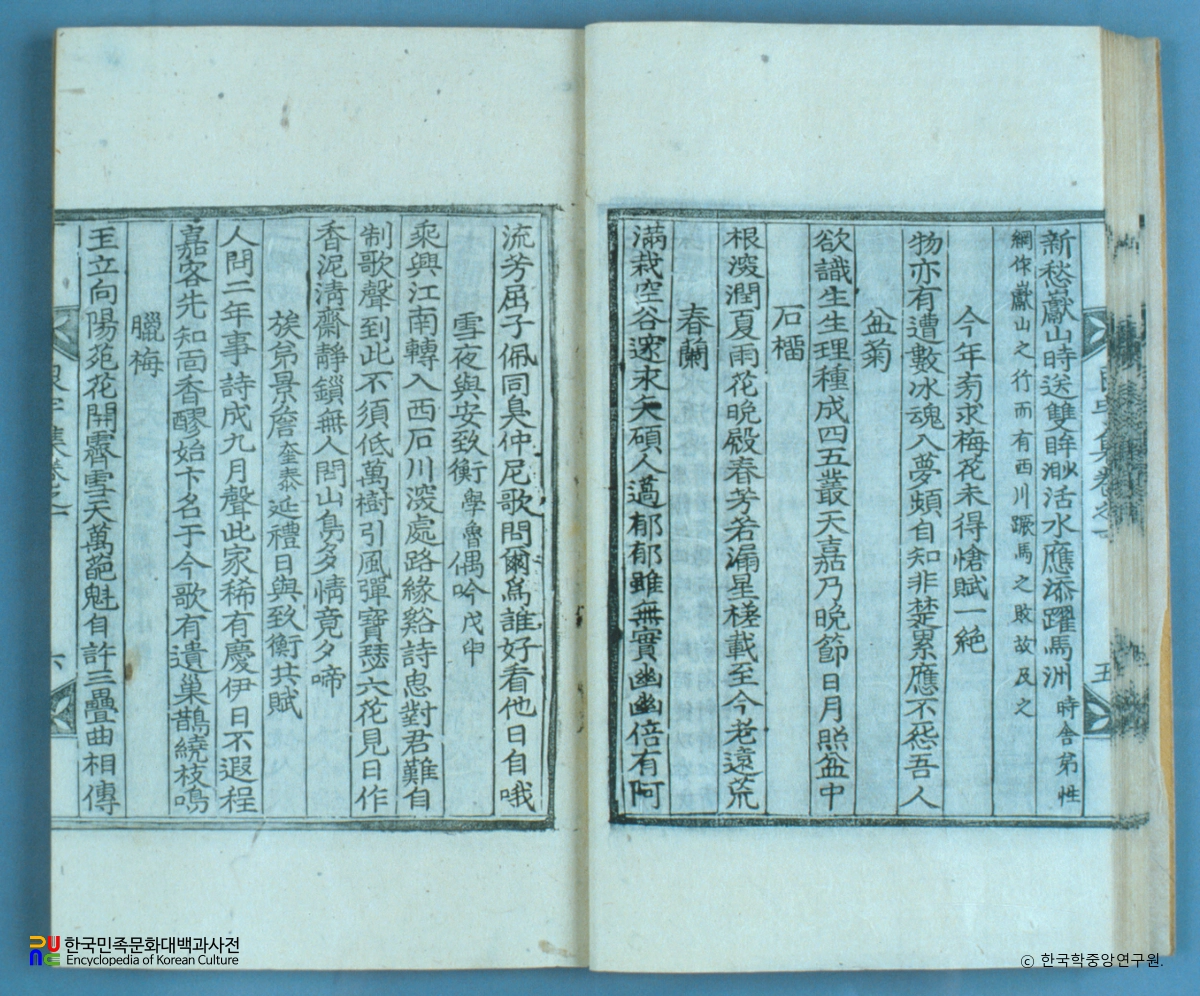 新愁巘山時送雙眸淚活水應添躍馬洲 時舍弟性
綱作巘山之行而有西川蹶馬之敗故及之
今年旁求梅花未得愴賦一絶
物亦有遭數冰魂入夢頻自知非楚累應不怨吾人
盆菊
欲識生生理種成四五叢天嘉乃晩節日月照盆中
石榴
根深潤夏雨花晩殿春芳若漏星槎載至今老遠荒
春蘭
滿栽空谷邃永矢碩人薖郁郁雖無實幽幽倍有阿
五
流芳屈子佩同臭仲尼歌問爾爲誰好看他日自哦
雪夜與安致衡 學魯 偶吟 戊申
乘興江南轉入西石川深處路緣谿詩悤對君難自
制歌聲到此不須低萬樹引風彈寶瑟六花見日作
香泥淸齋靜鎖無人問山鳥多情竟夕啼
族弟景詹 奎泰 延禮日與致衡共賦
人間二年事詩成九月聲此家稀有慶伊日不遐程
嘉客先知面香醪始卞名于今歌有遺巢鵲繞枝鳴
臘梅
玉立向陽苑花開霽雪天萬葩魁自許三疊曲相傳
集卷之
六
한국민족문화대백과사전
Encyclopedia of Korean Culture
ⓒ 한국학중앙연구원.